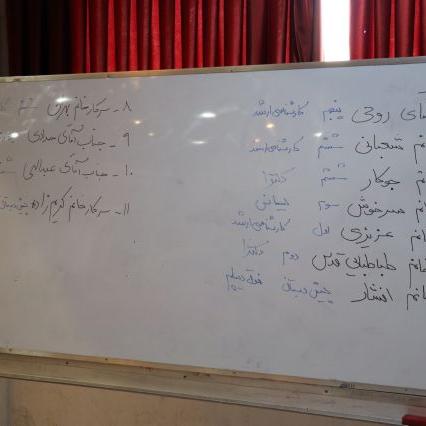 آقای روحی پنجم کارشناسی ارشد
خانم شعبانی ششم کارشناسی ارشد
خانم جوکار ششم دکترا
خانم سرخوش سوم لیسانس
خانم عزیزی اول کارشناسی ارشد
خانم طباطبایی قدس دوم دکترا
خانم افشار پیش دبستان فوق دیپلم
۸ - سرکار خانم
۹ - جناب آقای
۱۰ - جناب آقای عبدالهی
۱۱ - سرکار خانم کریم زاده